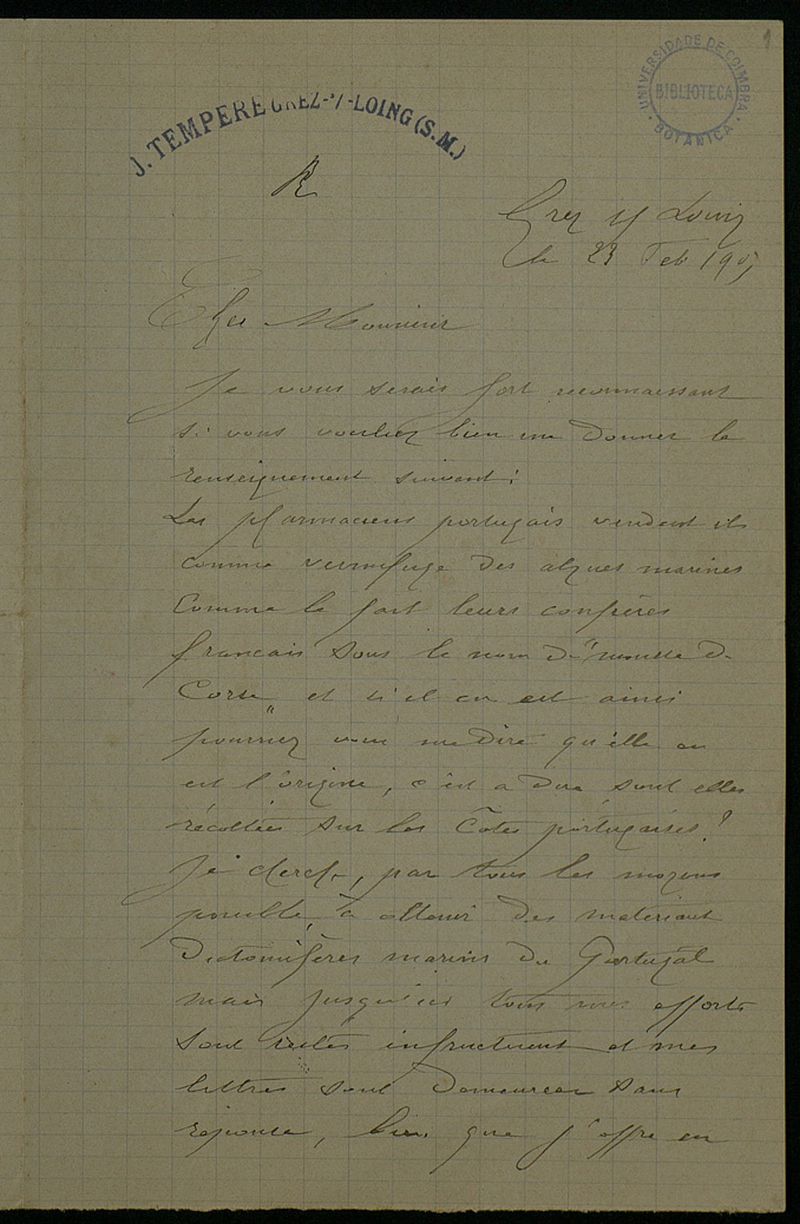 1
UNIVERSIDADE DE COIMBRA
BIBLIOTECA
BOTANICA
J. TEMPERE GREZ-s/-LOING (S.M.)
R
Grez s/ Loing
le 23 Feb 190
Cher Monsieur
Je vous serais fort reconnaissant
si vous vouliez bien me donner le
renseignement suivant:
Les pharmaciens portugais vendent ils
comme vermifuge des algues marines
comme le font leurs confrères
francais sous le nom de "mousse de
Corse" et s'il en est ainsi
pourriez vous me dire qu'elle en
est l'origine, c'est a dire, sont elles
récoltées sur les Côtes portugaises?
Je cherche, par tous les moyens
possible, à obtenir des materiaux
Diatomifères marins du Portugal
mais jusqu'ici tous mes efforts
sont restés infructueux et mes
lettres sont demeurées sans
reponse, bien que j'offre en